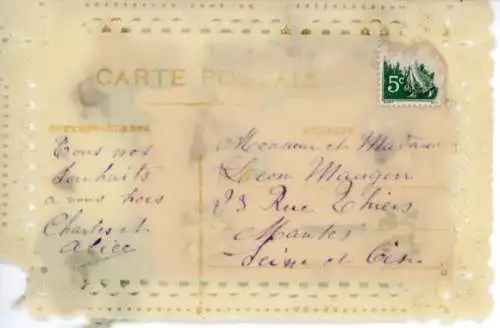 CARTE POSTALE
5c
CORRESPONDANCE
Tous nos
souhaits
a vous trois
Charles et
Alice
Monsieur et Madame
Leon Maugin
23 Rue Thiers
Mantes
Seine et Oise